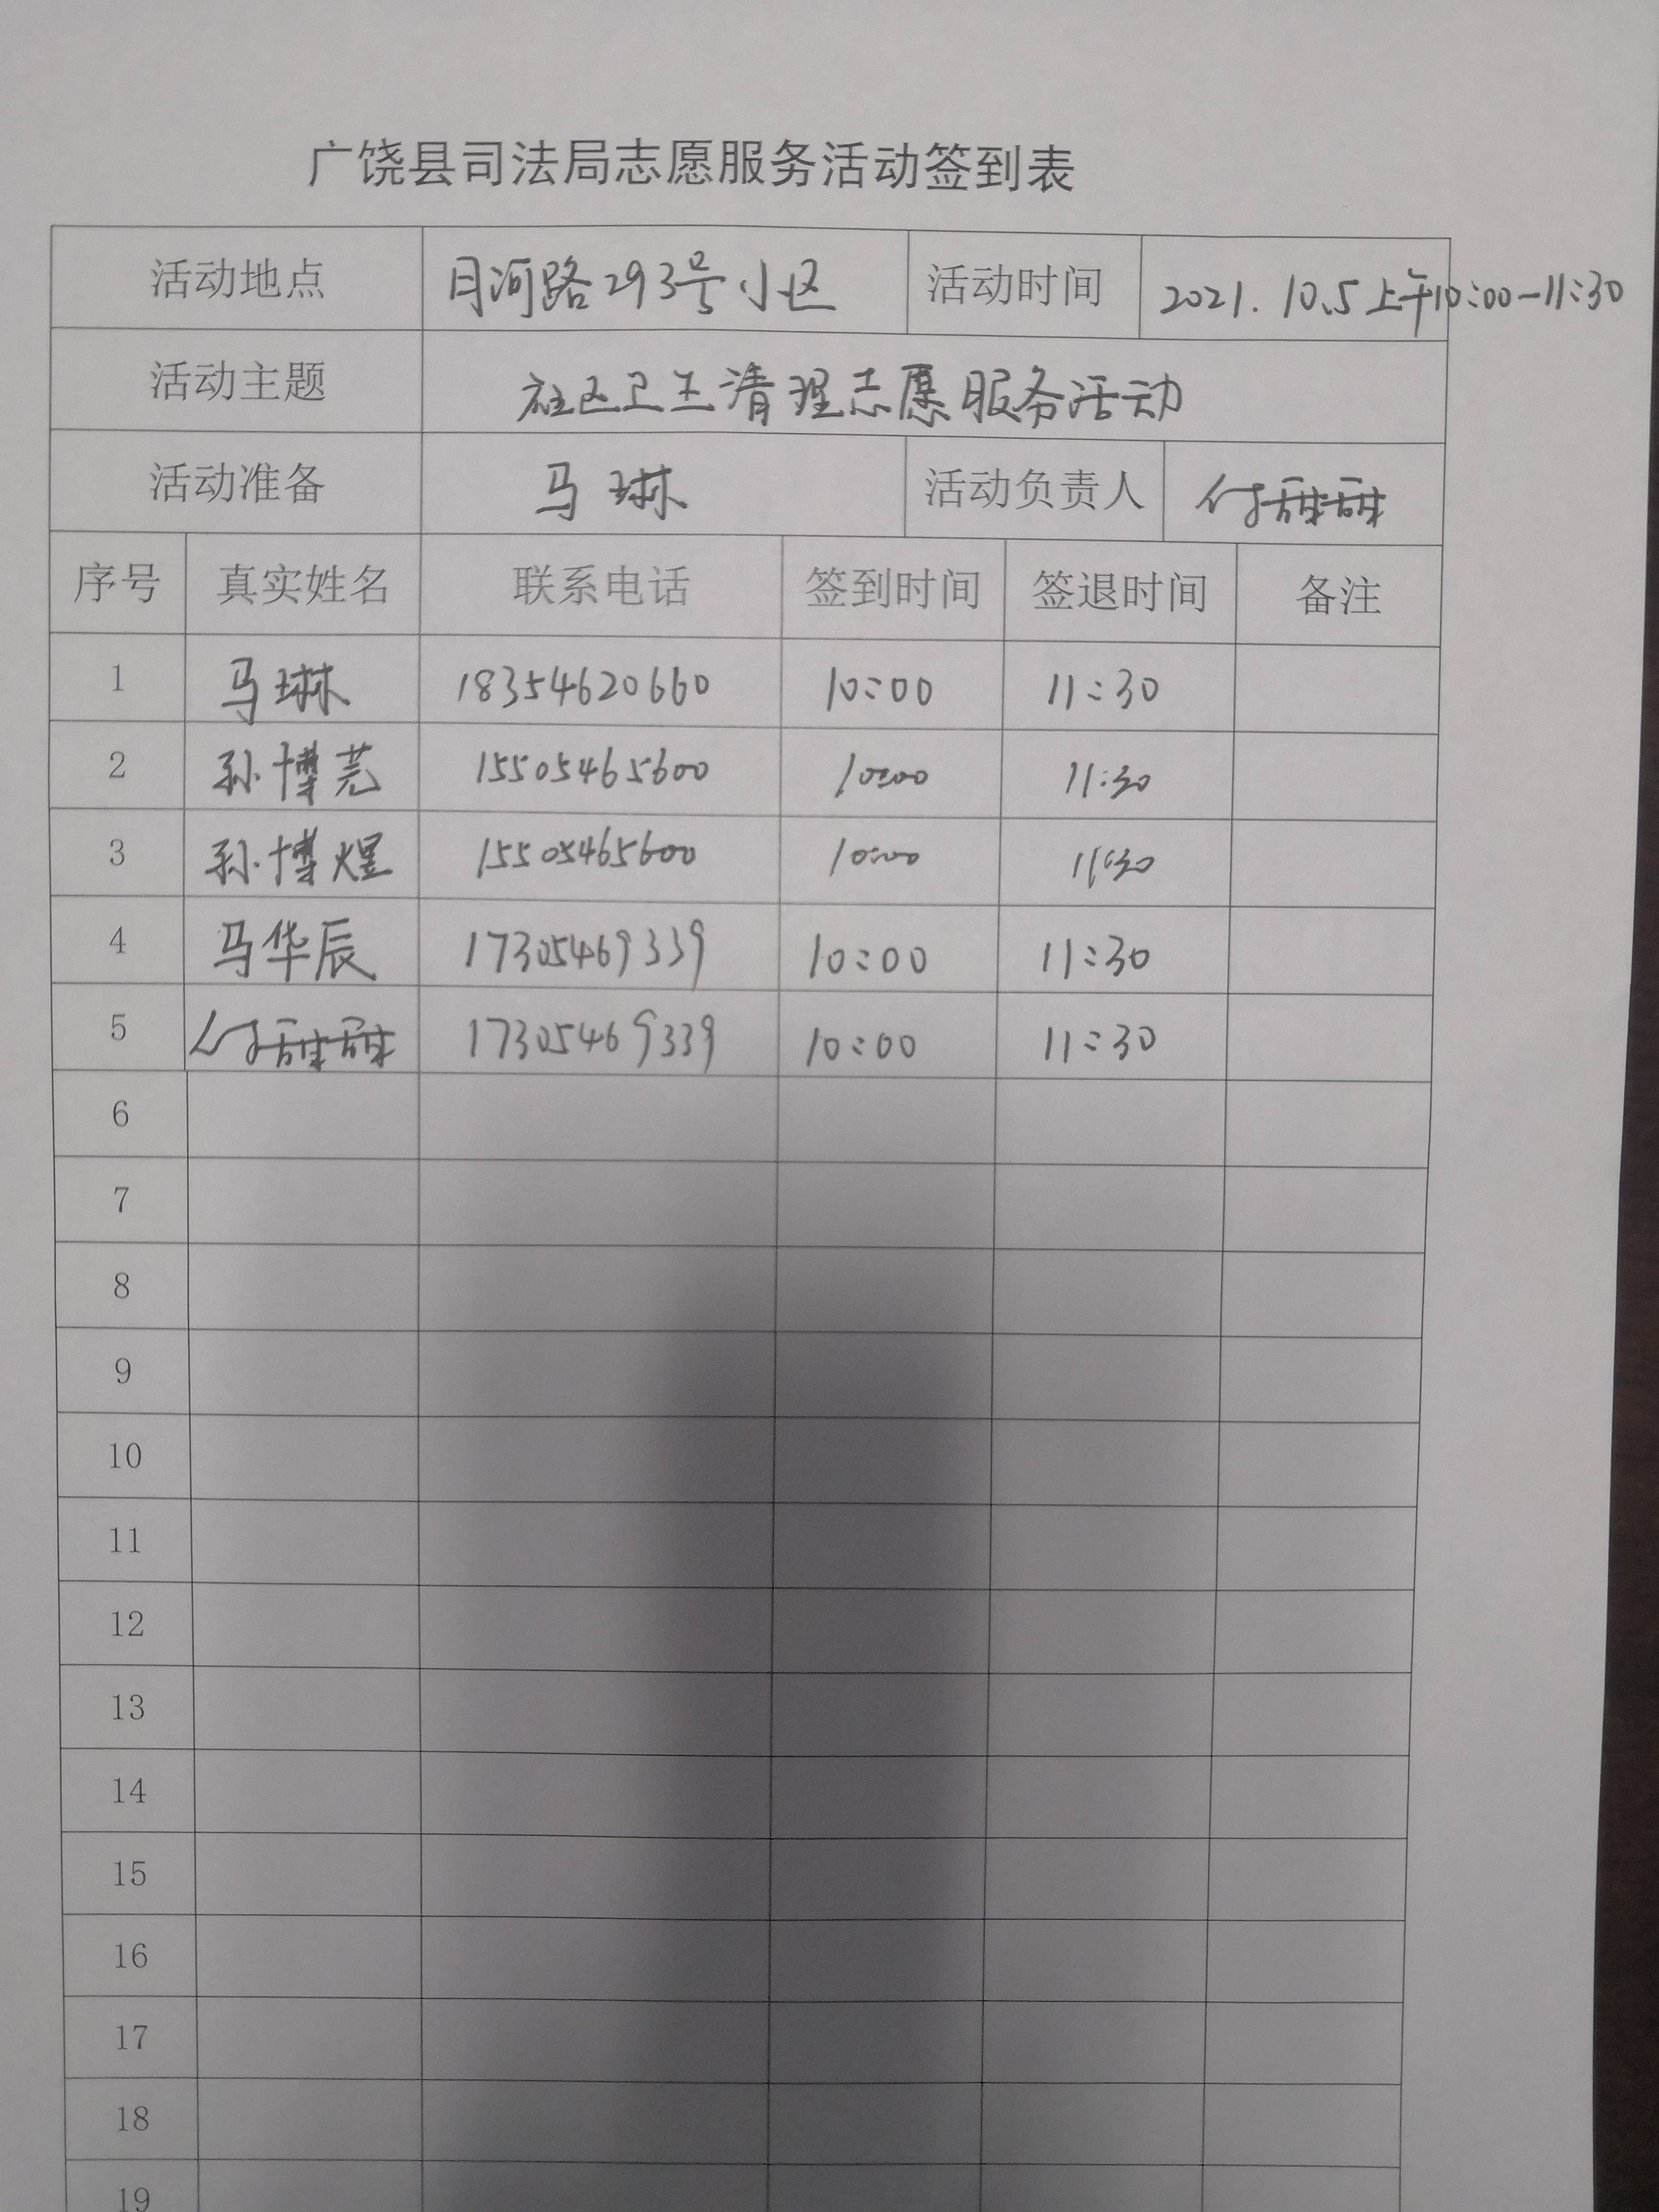 广饶县司法局志愿服务活动签到表
活动地点 月河路293号小区 活动时间 2021.10.5上午10:00-11:30
活动主题 社区卫生清理志愿服务活动
活动准备 马琳 活动负责人 付甜甜
序号 真实姓名 联系电话 签到时间 签退时间 备注
1 马琳 18354620660 10:00 11:30
2 孙博芫 15505465600 10:00 11:30
3 孙博煜 15505465600 10:00 11:30
4 马华辰 17305469339 10:00 11:30
5 付甜甜 17305469339 10:00 11:30
6
7
8
9
10
11
12
13
14
15
16
17
18
19